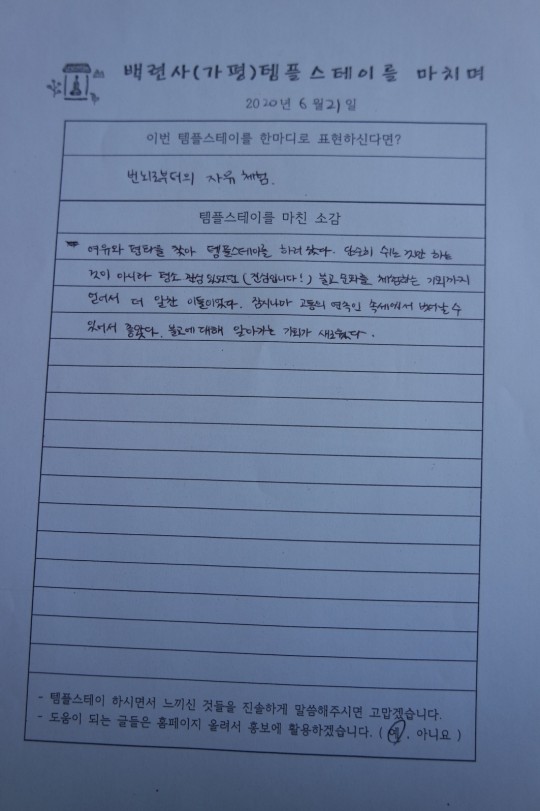 백련사(가평)템플스테이를 마치며
2020년 6월21일
이번 템플스테이를 한마디로 표현하신다면?
번뇌로부터의 자유 체험.
템플스테이를 마친 소감
여유와 평화를 찾아 템플스테이를 하러 왔다. 단순히 쉬는 것만 하는
것이 아니라 평소 관심 있었던 (진심입니다!) 불교 문화를 체험하는 기회까지
얻어서 더 알찬 이틀이었다. 잠시나마 고통의 연속인 속세에서 벗어날 수
있어서 좋았다. 불교에 대해 알아가는 기회가 새로웠다.
- 템플스테이 하시면서 느끼신 것들을 진솔하게 말씀해주시면 고맙겠습니다.
- 도움이 되는 글들은 홈페이지 올려서 홍보에 활용하겠습니다. ( 예 , 아니요 )